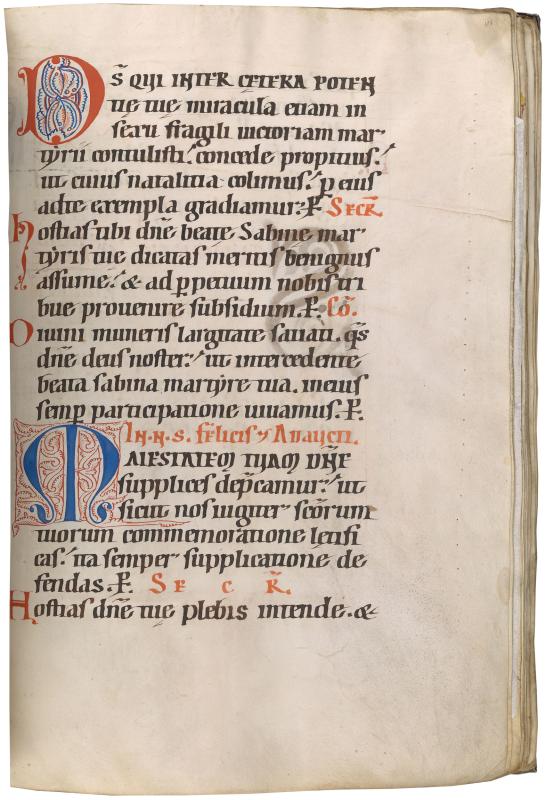 DS̃ QUI INTER CETERA POTEN
tie tue miracula etiam in
sexu fragili uictoriam mar
tyrii contulisti. concede propitius.
ut cuius natalitia colimus. p eius
adte exempla gradiamur. P. SECR̃
Hostias tibi dñe beate Sabine mar
tyris tue dicatas meritis benignus
assume. & ad ppetuum nobis tri
bue prouenire subsidium. P. Cõ.
Omni muneris largitate satiati. q̃s
dñe deus noster. ut intercedente
beata sabina martyre tua. in eius
semp participatione uiuamus. P.
IN. N. S. felicis & Adaucti.
MAIESTATEM TUAM DÑE
supplices dep̃camur. ut
sicut nos iugiter sc̃orum
tuorum commemoratione letifi
cas. ita semper supplicatione de
fendas. P. S E C R̃.
Hostias dñe tue plebis intende. &